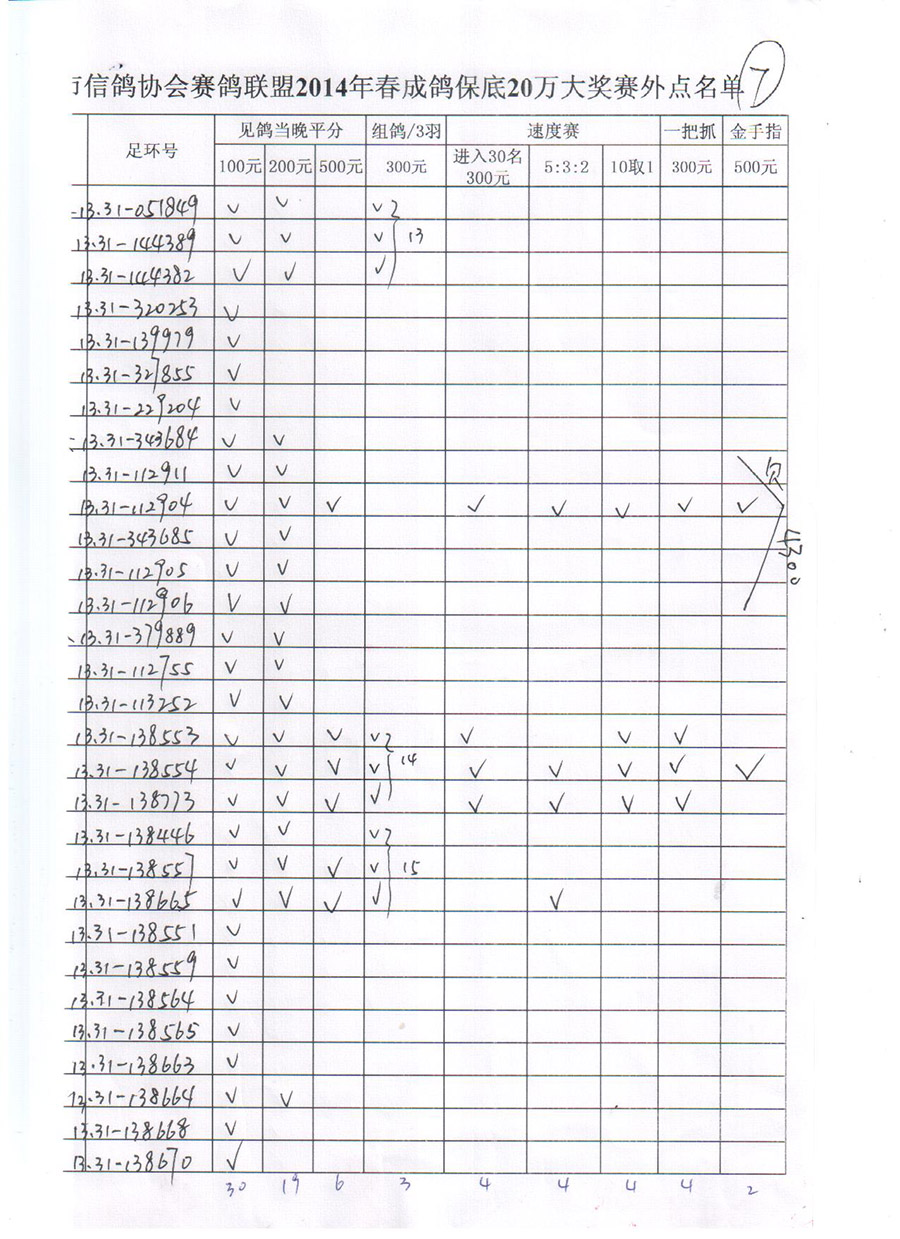 市信鸽协会赛鸽联盟2014年春成鸽保底20万大奖赛外点名单 7
足环号 见鸽当晚平分 组鸽/3羽 速度赛 一把抓 金手指
100元 200元 500元 300元 进入30名 300元 5:3:2 10取1 300元 500元
13.31-051849 ✓ ✓ ✓
13.31-144389 ✓ ✓ ✓ 13
13.31-144382 ✓ ✓ ✓
13.31-320253 ✓
13.31-139979 ✓
13.31-327855 ✓
13.31-229204 ✓
13.31-343684 ✓ ✓
13.31-112911 ✓ ✓ 欠
13.31-112904 ✓ ✓ ✓ ✓ ✓ ✓ ✓ ✓
13.31-343685 ✓ ✓ 4300
13.31-112905 ✓ ✓
13.31-112906 ✓ ✓
13.31-379889 ✓ ✓
13.31-112755 ✓ ✓
13.31-113252 ✓ ✓
13.31-138553 ✓ ✓ ✓ ✓ ✓ ✓ ✓
13.31-138554 ✓ ✓ ✓ ✓ 14 ✓ ✓ ✓ ✓ ✓
13.31-138773 ✓ ✓ ✓ ✓ ✓ ✓ ✓ ✓
13.31-138446 ✓ ✓ ✓
13.31-138557 ✓ ✓ ✓ ✓ 15
13.31-138665 ✓ ✓ ✓ ✓ ✓
13.31-138551 ✓
13.31-138559 ✓
13.31-138564 ✓
13.31-138565 ✓
13.31-138663 ✓
13.31-138664 ✓ ✓
13.31-138668 ✓
13.31-138670 ✓
30 19 6 3 4 4 4 4 2